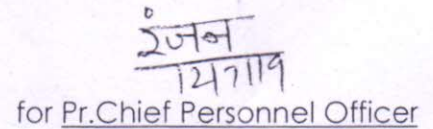 रंजन
for Pr.Chief Personnel Officer